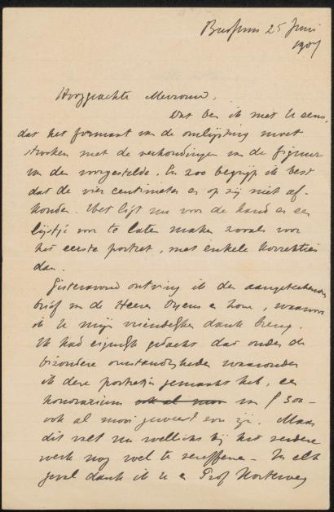 Bussum 25 Juni
1907
Hooggeachte Mevrouw.
Dat ben ik met U eens,
dat het formaat van de omlijsting moet
strooken met de verhoudingen van de figuur
van den voorgestelde. En zoo begrijp ik best
dat de vier centimeter er op zij niet af
konden. Het ligt nu voor de hand er een
lijstje voor te laten maken zooals voor
het eerste portret, met enkele korrekties
dan.
Gisteravond ontving ik den aangeteekenden
brief van de Heeren en Zone, waarvoor
ik U mijn vriendelijken dank breng.
Ik had eigenlijk gedacht dat onder de
bizondere omstandigheden waaronder
ik deze portretten gemaakt heb, een
honorarium ook al mooi van ƒ 300-
ook al mooi geweest zou zijn. Maar
dit valt nu wellicht bij het verdere
werk nog wel te vereffenen. In elk
geval dank ik U en Prof Korteweg